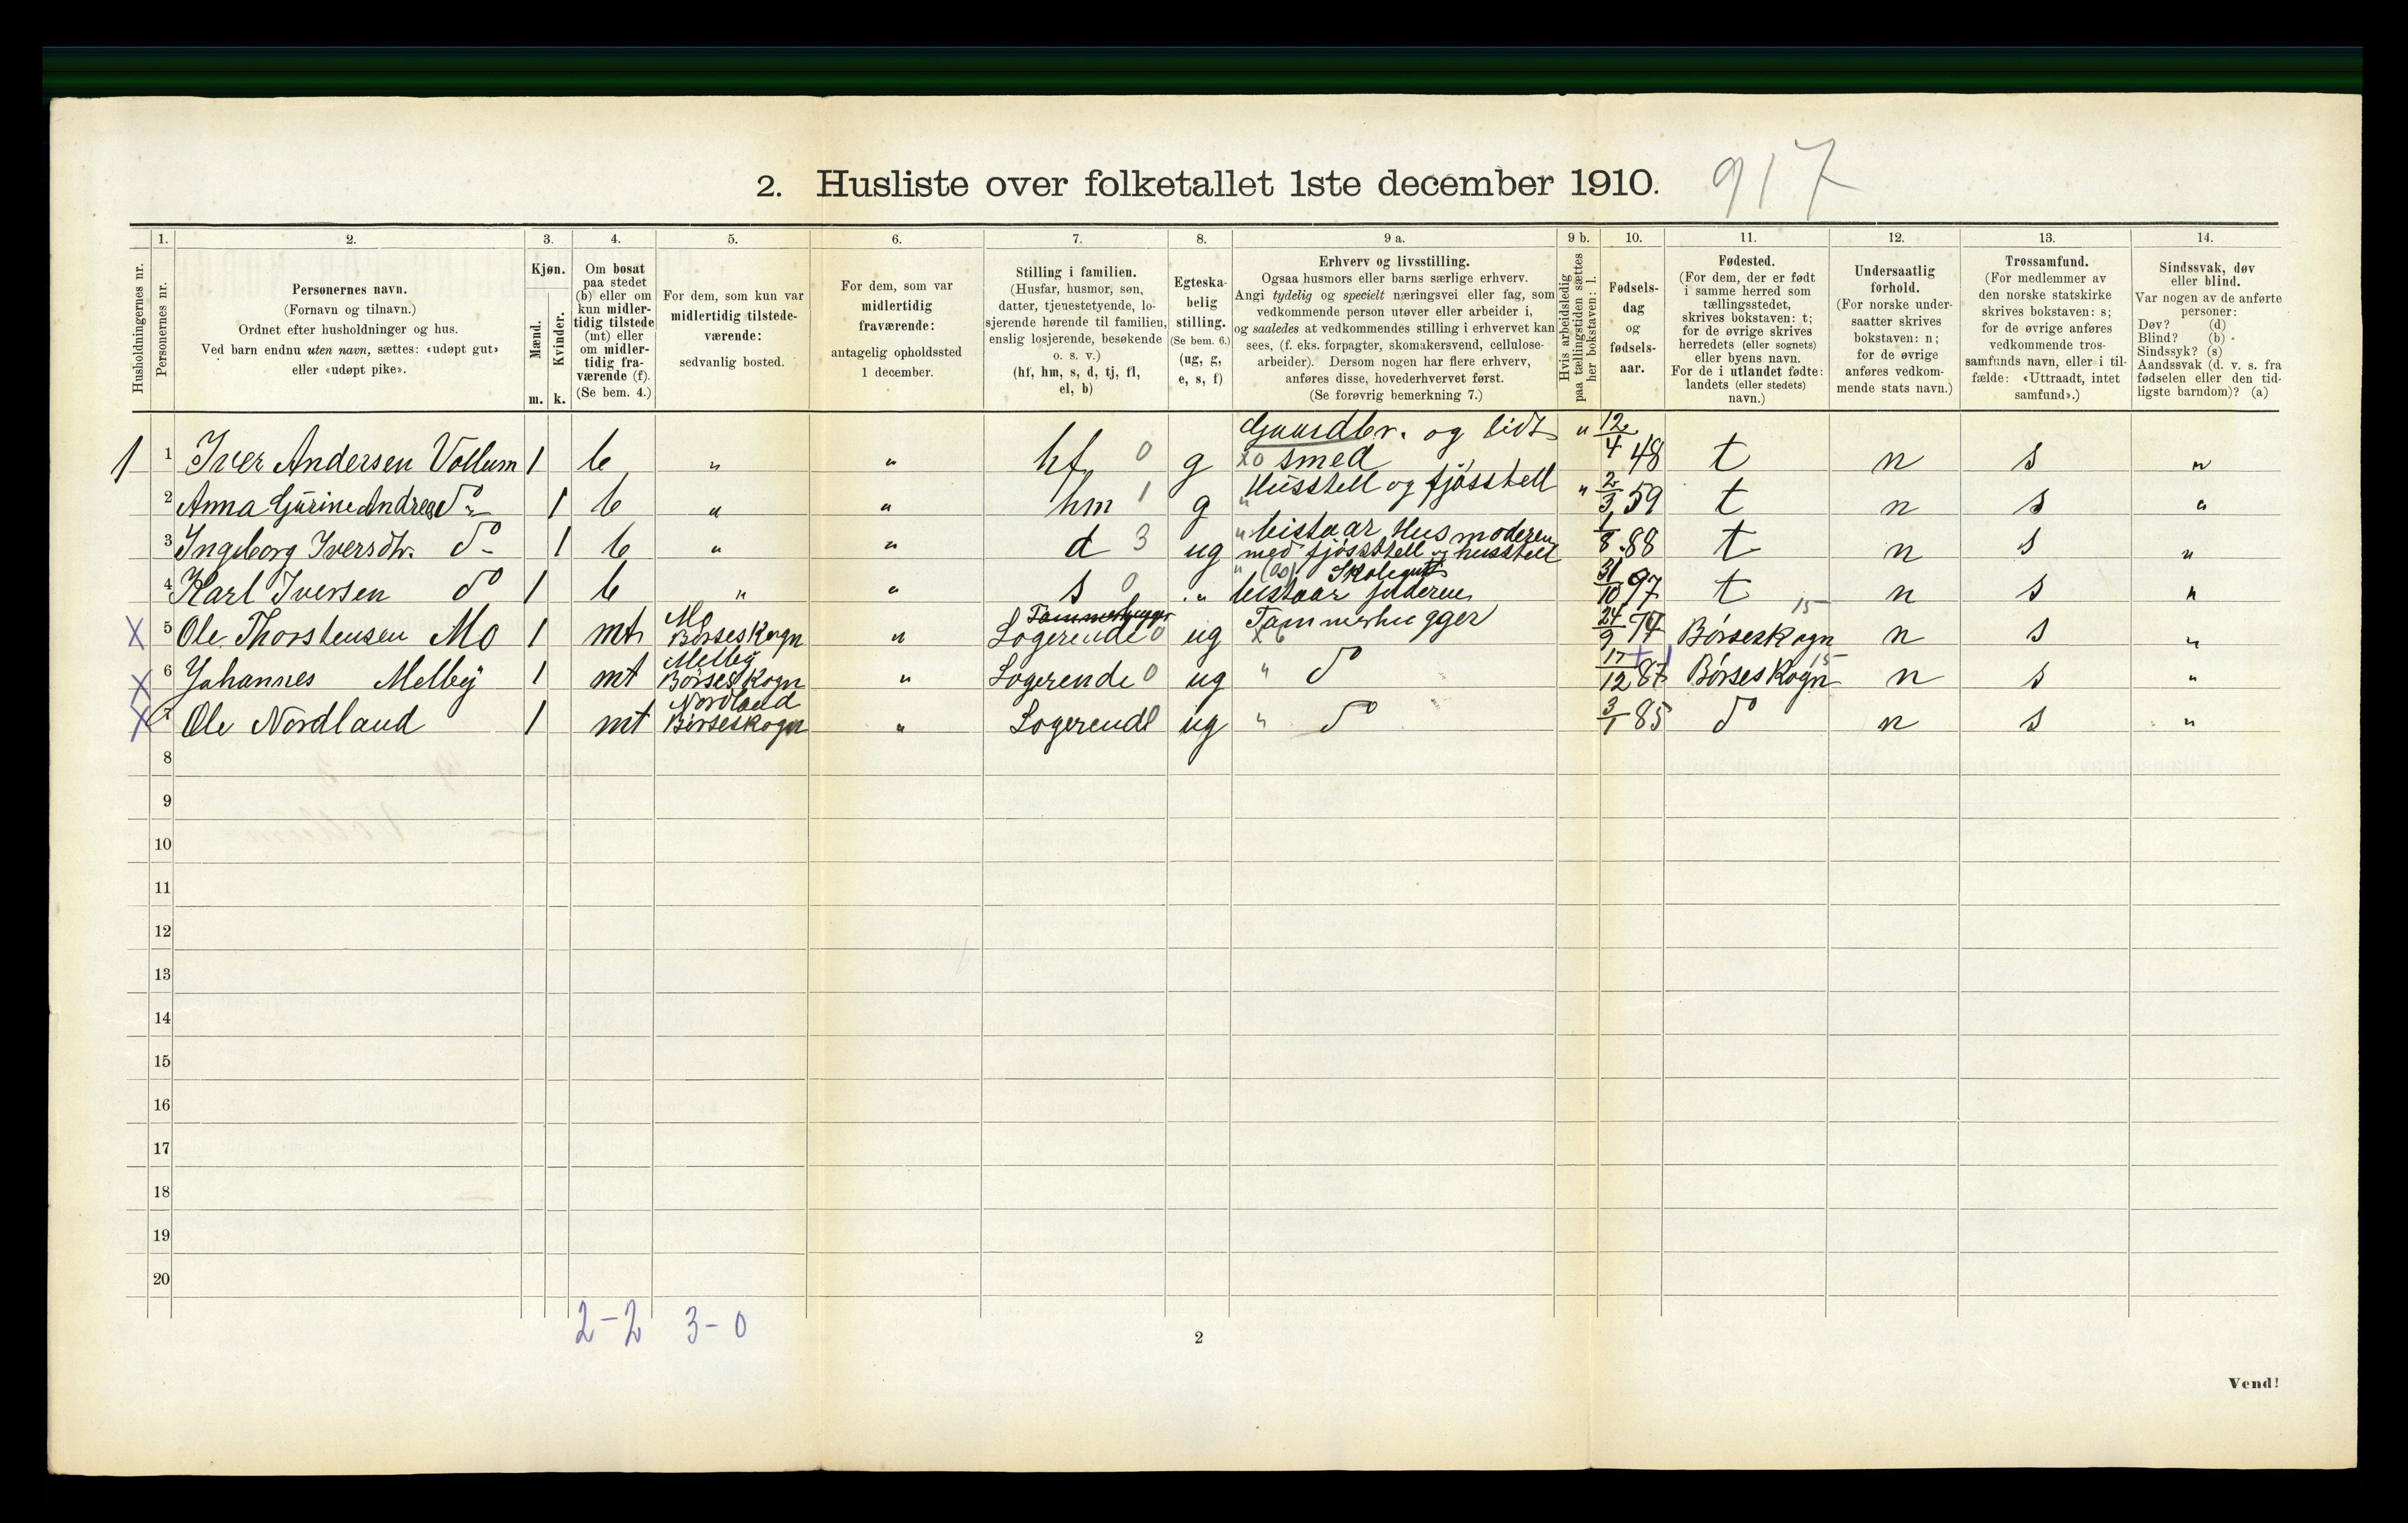 2. Husliste over folketallet 1ste december 1910. 917
1. 2. 3. 4. 5. 6. 7. 8. 9 a. 9 b. 10. 11. 12. 13. 14.
Husholdningernes nr.
Personernes nr.
Personernes navn.
(Fornavn og tilnavn.)
Ordnet efter husholdninger og hus.
Ved barn endnu uten navn, sættes: «udøpt gut»
eller «udøpt pike».
Kjøn.
Mænd.
Kvinder.
m. k.
Om bosat
paa stedet
(b) eller om
kun midler-
tidig tilstede
(mt) eller
om midler-
tidig fra-
værende (f).
(Se bem. 4.)
For dem, som kun var
midlertidig tilstede-
værende:
sedvanlig bosted.
For dem, som var
midlertidig
fraværende:
antagelig opholdssted
1 december.
Stilling i familien.
(Husfar, husmor, søn,
datter, tjenestetyende, lo-
sjerende hørende til familien,
enslig losjerende, besøkende
o. s. v.)
(hf, hm, s, d, tj, fl,
el, b)
Egteska-
belig
stilling.
(Se bem. 6.)
(ug, g,
e, s, f)
Erhverv og livsstilling.
Ogsaa husmors eller barns særlige erhverv.
Angi tydelig og specielt næringsvei eller fag, som
vedkommende person utøver eller arbeider i,
og saaledes at vedkommendes stilling i erhvervet kan
sees, (f. eks. forpagter, skomakersvend, cellulose-
arbeider). Dersom nogen har flere erhverv,
anføres disse, hovederhvervet først.
(Se forøvrig bemerkning 7.)
Hvis arbeidsledig
paa tællingstiden sættes
her bokstaven: l.
Fødsels-
dag
og
fødsels-
aar.
Fødested.
(For dem, der er født
i samme herred som
tællingsstedet,
skrives bokstaven: t;
for de øvrige skrives
herredets (eller sognets)
eller byens navn.
For de i utlandet fødte:
landets (eller stedets)
navn.)
Undersaatlig
forhold.
(For norske under-
saatter skrives
bokstaven: n;
for de øvrige
anføres vedkom-
mende stats navn.)
Trossamfund.
(For medlemmer av
den norske statskirke
skrives bokstaven: s;
for de øvrige anføres
vedkommende tros-
samfunds navn, eller i til-
fælde: «Uttraadt, intet
samfund».)
Sindssvak, døv
eller blind.
Var nogen av de anførte
personer:
Døv? (d)
Blind? (b)
Sindssyk? (s)
Aandssvak (d. v. s. fra
fødselen eller den tid-
ligste barndom)? (a)
1 1 Iver Andersen Vollum 1 b " " hf 0 g Gaardbr. og lidt x0 smed " 12/4 48 t n s "
2 Anna Gurine Andreas do 1 b " " hm 1 g " Husstell og fjósstell " 2/3 59 t n s "
3 Ingeborg Iversdtr. do 1 b " " d 3 ug " bistaar Husmoderen med fjósstell og husstell 1/8 88 t n s "
4 Karl Iversen do 1 b " " s 0 " Skolegut bistaar faderen 31/10 97 t n s "
X 5 Ole Thorstensen Mo 1 mt Mo Børseskogn " Tømmerhugger Logerende 0 ug Tømmerhugger x6 24/9 74 Børseskogn 15 n s "
X 6 Johannes Melby 1 mt Melby Børseskogn " Logerende 0 ug " do 17/12 87 Børseskogn 15 n s "
X 7 Ole Nordland 1 mt Nordland Børseskogn " Logerende ug " do 3/1 85 do n s "
8
9
10
11
12
13
14
15
16
17
18
19
20
2-2 3-0
2
Vend!